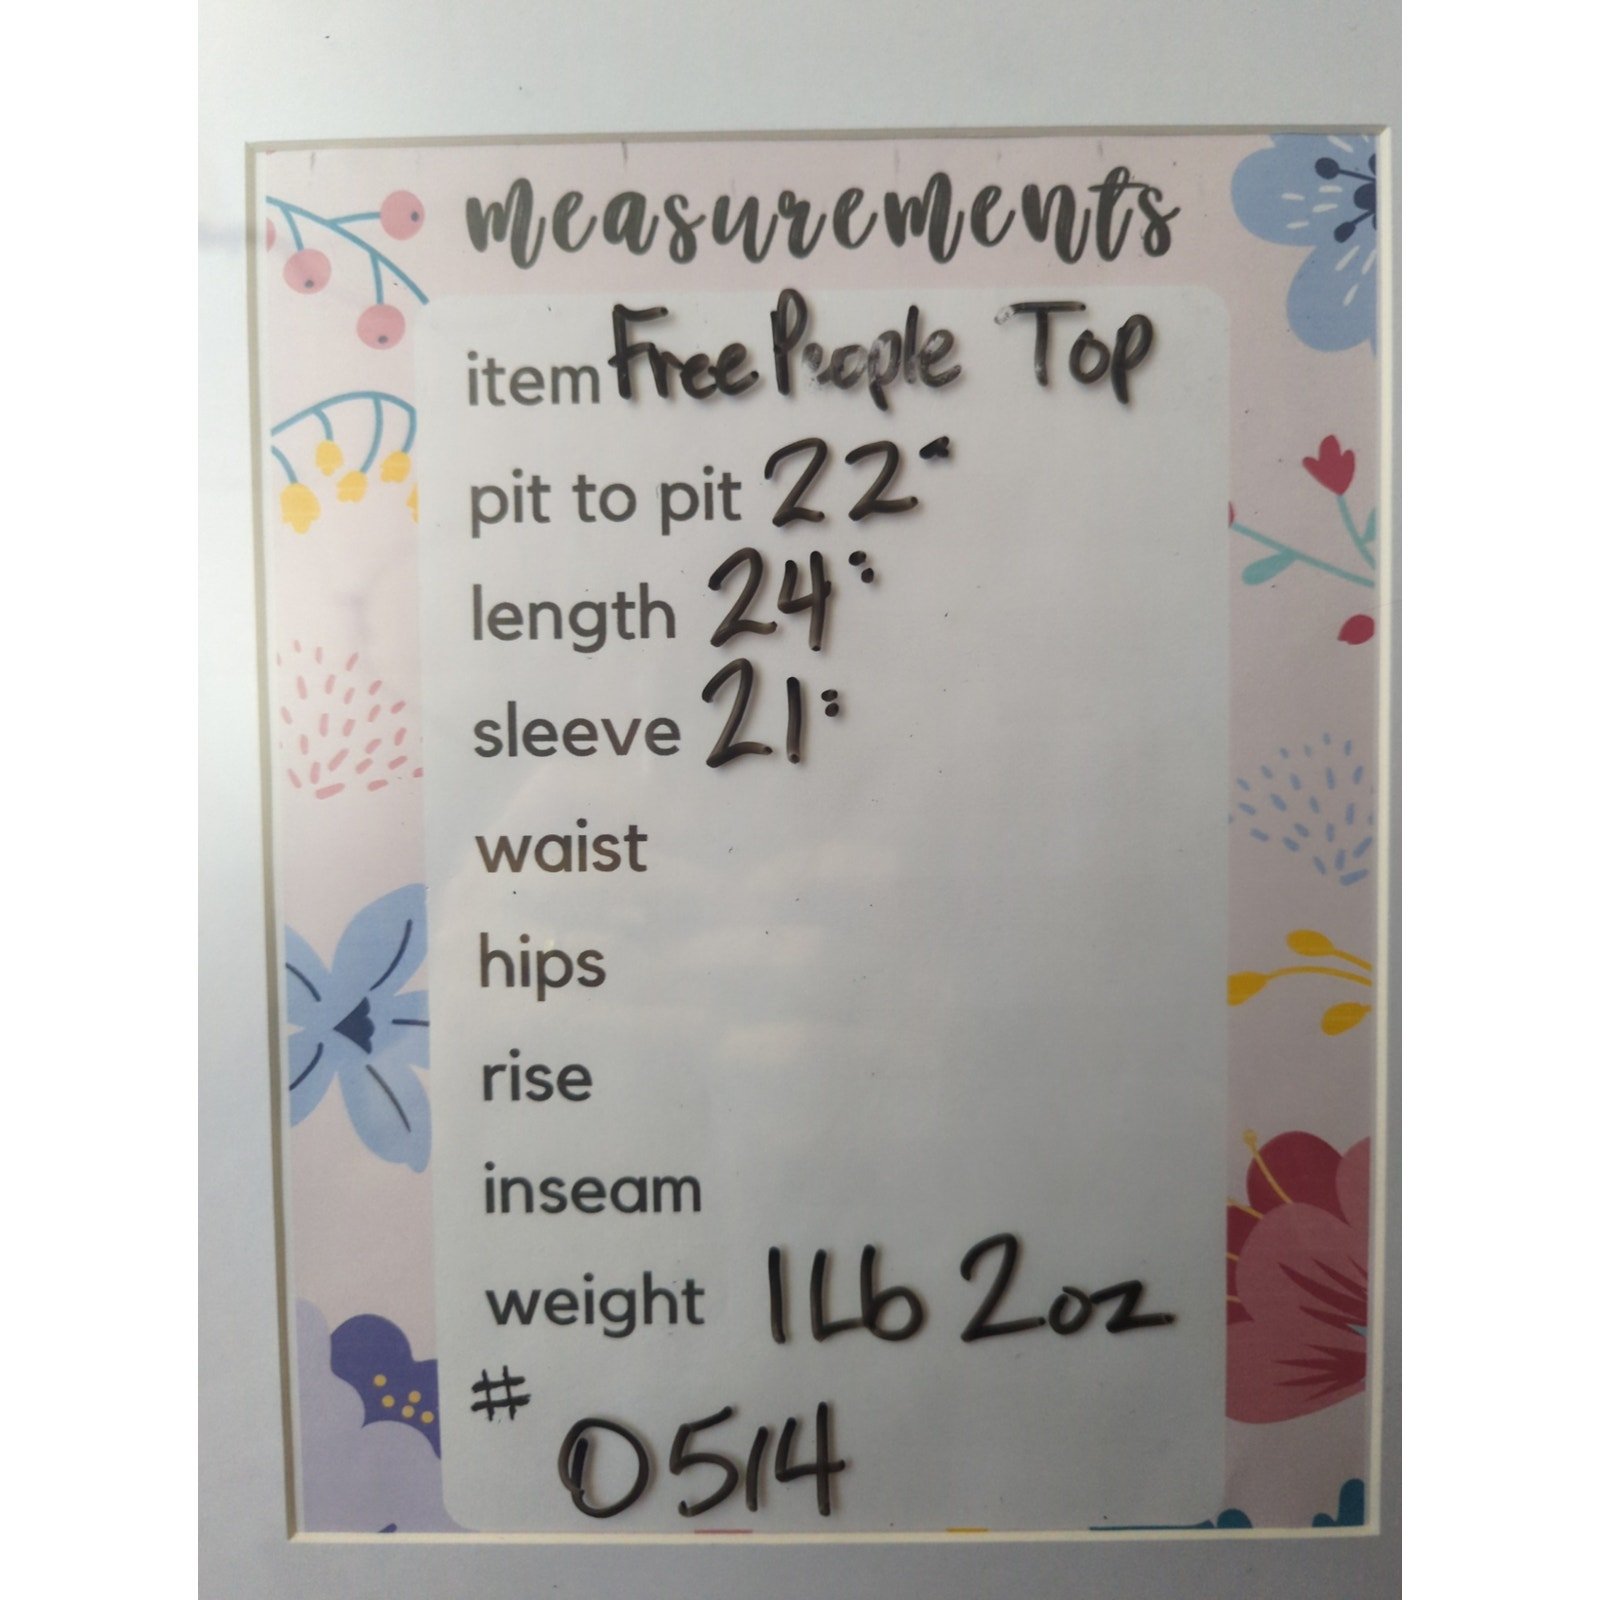 measurements
item Free People Top
pit to pit 22"
length 24"
sleeve 21"
waist
hips
rise
inseam
weight 1Lb 2oz
#
0514